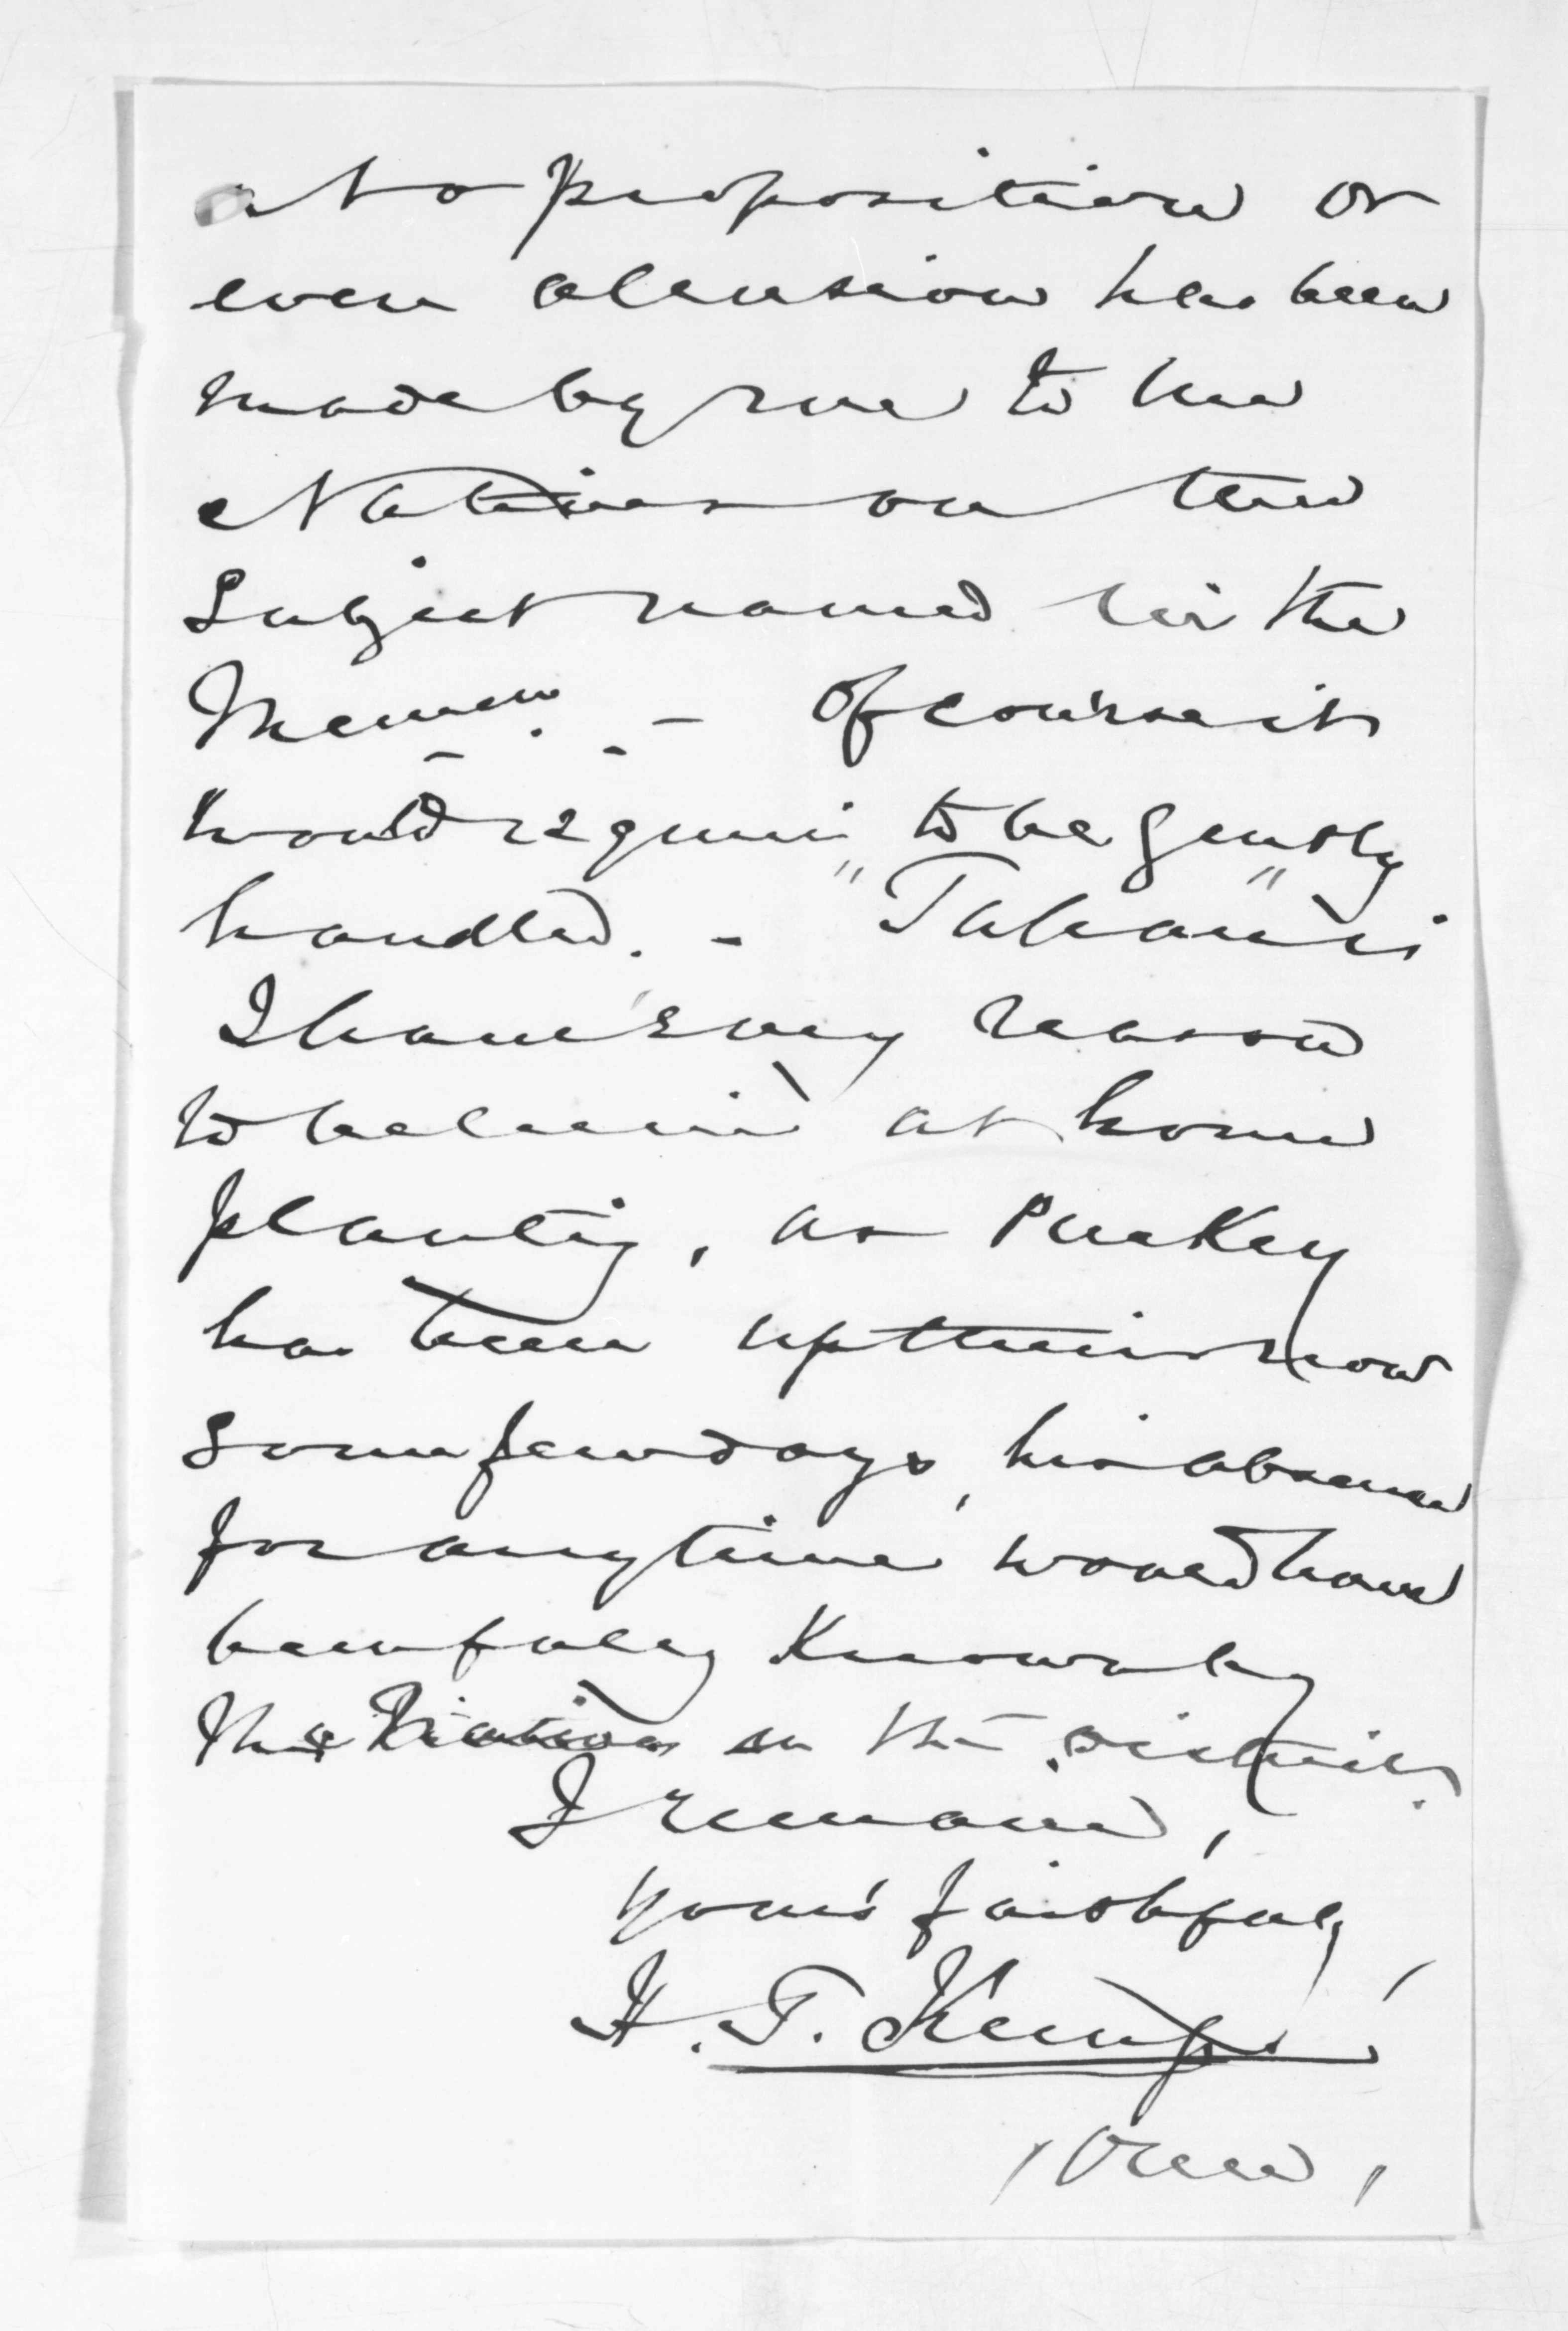 No proposition or
even alusion has been
made by me to the
Natives on the
Subject named in the
Memm. - Of course it
would require to be gently
handled. - "Tahanui"
I have every reason
to believe at home
planting, as Puckey
has been up there now
some few days, his absence
for any time would have
been fully known by
the Natives in the district.
I remain,
yours faithfully
H. T. Kemp
(Over)